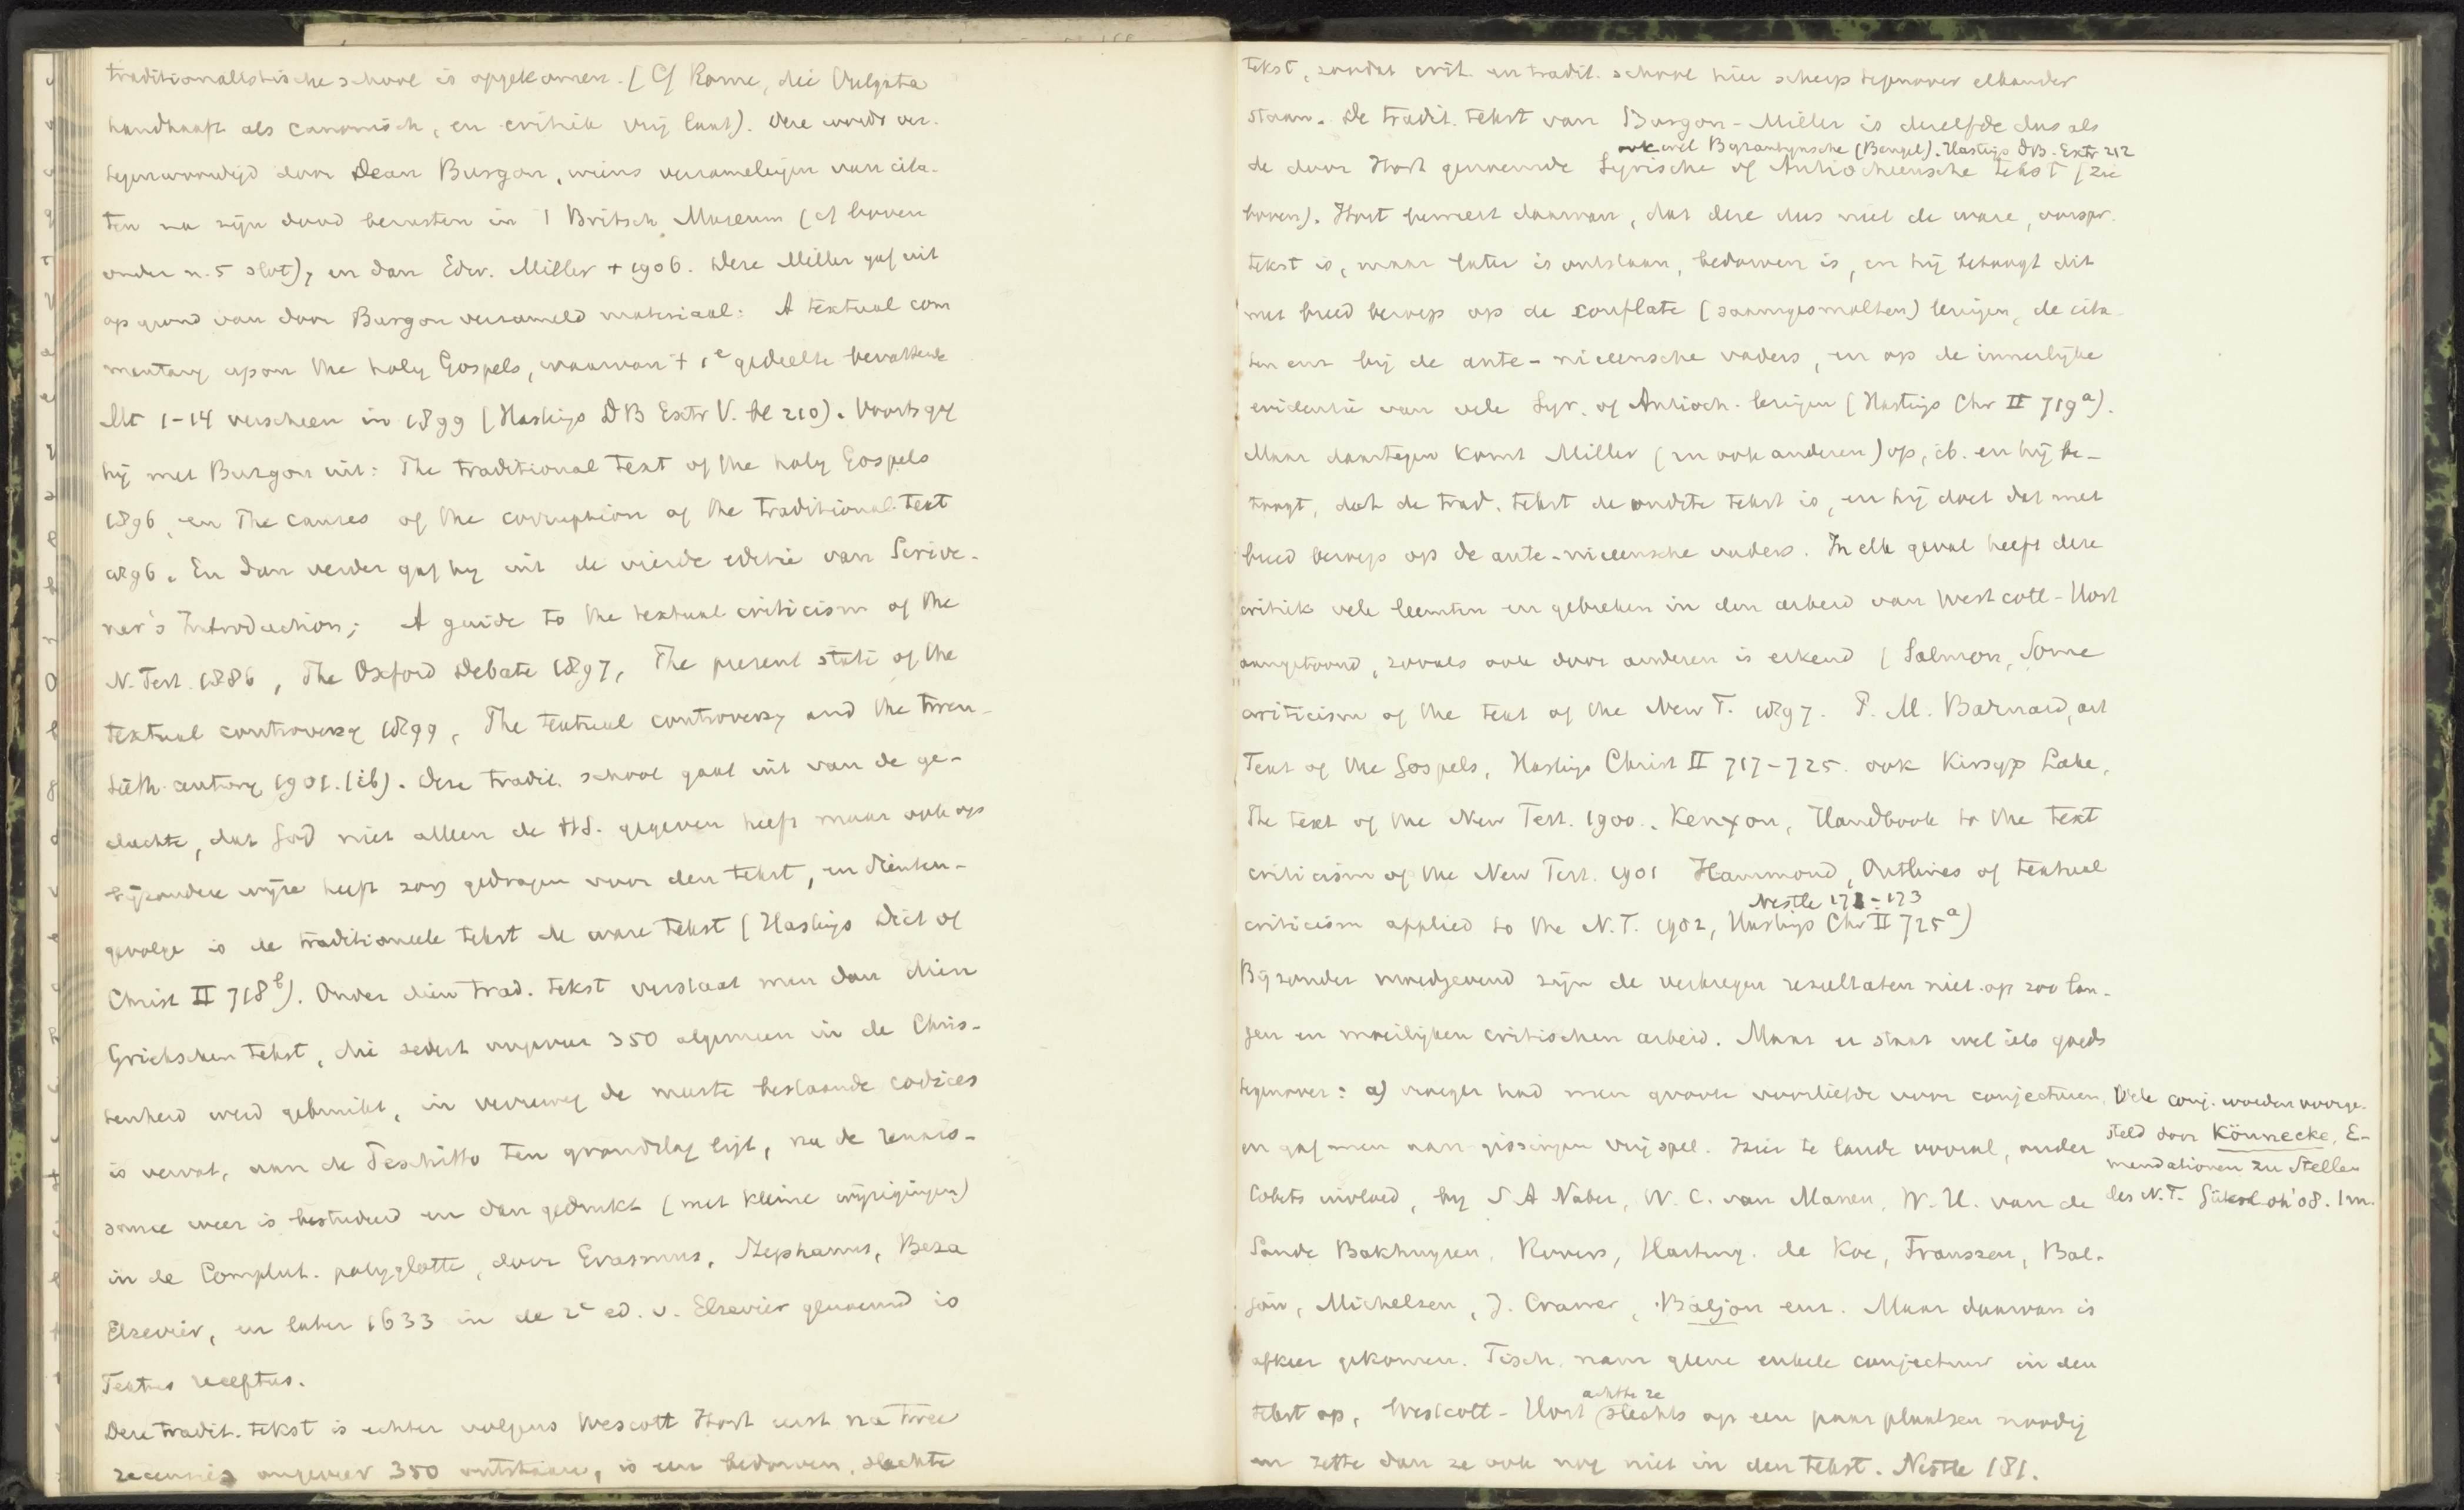 traditionalistische school is opgekomen. (Cf Rome, die Vulgata
handhaaft als canonisch, en critiek vrij laat). Deze wordt ver-
tegenwoordigd door Dean Burgon, wiens verzamelingen van cita-
ten na zijn dood berusten in 't Britsch Museum (cf boven
onder n. 5 slot), en dan Edw. Miller + 1906. Deze Miller gaf uit
op grond van door Burgon verzameld materiaal: A textual com
mentary upon the holy Gospels, waarvan 't 1e gedeelte bevattende
Mt 1-14 verscheen in 1899 (Hastings DB Extr V. bl 210). Voorts gaf
hij met Burgon uit: The traditional text of the holy Gospels
1896, en The causes of the corruption of the traditional text
1896. En dan verder gaf hij uit de vierde editie van Scrive-
ner's Introduction; A guide to the textual criticism of the
N. Test. 1886, The Oxford Debate 1897, The present state of the
textual controversy 1899, The textual controversy and the twen-
tieth century 1901. (ib). Deze tradit. school gaat uit van de ge-
dachte, dat God niet alleen de H.S. gegeven heeft maar ook op
bijzondere wijze heeft zorg gedragen voor den tekst, en dienten-
gevolge is de traditioneele tekst de ware tekst (Hastings Dict of
Christ II 718b). Onder dien trad. tekst verstaat men dan dien
Griekschen tekst, die sedert ongeveer 350 algemeen in de Chris-
tenheid werd gebruikt, in verreweg de meeste bestaande codices
is vervat, aan de Peschitto ten grondslag ligt, na de renais-
sance weer is bestudeerd en dan gedrukt (met kleine wijzigingen)
in de Complut. polyglotte, door Erasmus, Stephanus, Beza
Elzevier, en later 1633 in de 2e ed. v. Elzevier genoemd is
Textus receptus.
Deze tradit. tekst is echter volgens Wescott Hort eerst na twee
recensies ongeveer 350 ontstaan, is een bedorven, slechte
tekst, zoodat crit. en tradit. school hier scherp tegenover elkander
staan. De tradit. tekst van Burgon-Miller is dezelfde dus als
ook wel Byzantynsche (Bengel). Hastings DB. Extr 212
de door Hort genoemde Syrische of Antiocheensche tekst (zie
boven). Hort beweert daarvan, dat deze dus niet de ware, oorspr.
tekst is, maar later is ontstaan, bedorven is, en hij betoogt dit
met breed beroep op de conflate (saamgesmolten) lezingen, de cita-
ten enz bij de ante-niceensche vaders, en op de innerlijke
evidentie van vele Syr. of Antioch. lezingen (Hastings Chr II 719a).
Maar daartegen komt Miller (en ook anderen) op, ib. en hij be-
toogt, dat de trad. tekst de oudste tekst is, en hij doet dat met
breed beroep op de ante-niceensche vaders. In elk geval heeft deze
critiek vele leemten en gebreken in den arbeid van Westcott-Hort
aangetoond, zooals ook door anderen is erkend (Salmon, Some
criticism of the text of the New T. 1897. P. M. Barnard, art
Text of the Gospels, Hastings Christ II 717-725. ook Kirsopp Lake,
The text of the New Test. 1900., Kenyon, Handbook to the text
criticism of the New Test. 1901 Hammond, Outlines of textual
Nestle 171-173
criticism applied to the N.T. 1902, Hastings Chr II 725a)
Bijzonder moedgevend zijn de verkregen resultaten niet op zoo lan-
gen en moeilijken critischen arbeid. Maar er staat wel iets goeds
tegenover: a) vroeger had men groote voorliefde voor conjecturen,
en gaf men aan gissingen vrij spel. Hier te lande vooral, onder
Cobets invloed, bij S A Naber, W. C. van Manen, W. H. van de
Sande Bakhuyzen, Rovers, Harting, de Koe, Franssen, Bal-
jon, Michelsen, J. Cramer, Baljon enz. Maar daarvan is
afkeer gekomen. Tisch. nam geene enkele conjectuur in den
achtte ze
tekst op, Westcott-Hort slechts op een paar plaatsen noodig
en zette dan ze ook nog niet in den tekst. Nestle 181.
Vele conj. worden voorge-
steld door Könnecke, E-
mendationen zu Stellen
des N.T. Gütersloh '08. 1 m.